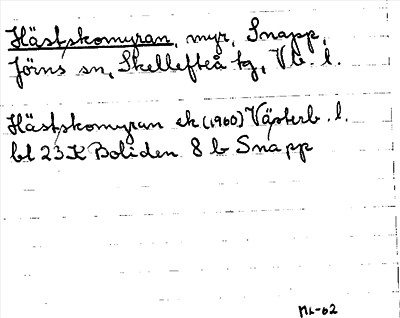 Hästskomyran, myr, Snapp,
Jörns sn, Skellefteå tg, Vb. l.
Hästskomyran ek (1960) Västerb. l.
bl 23 K Boliden 8 b Snapp